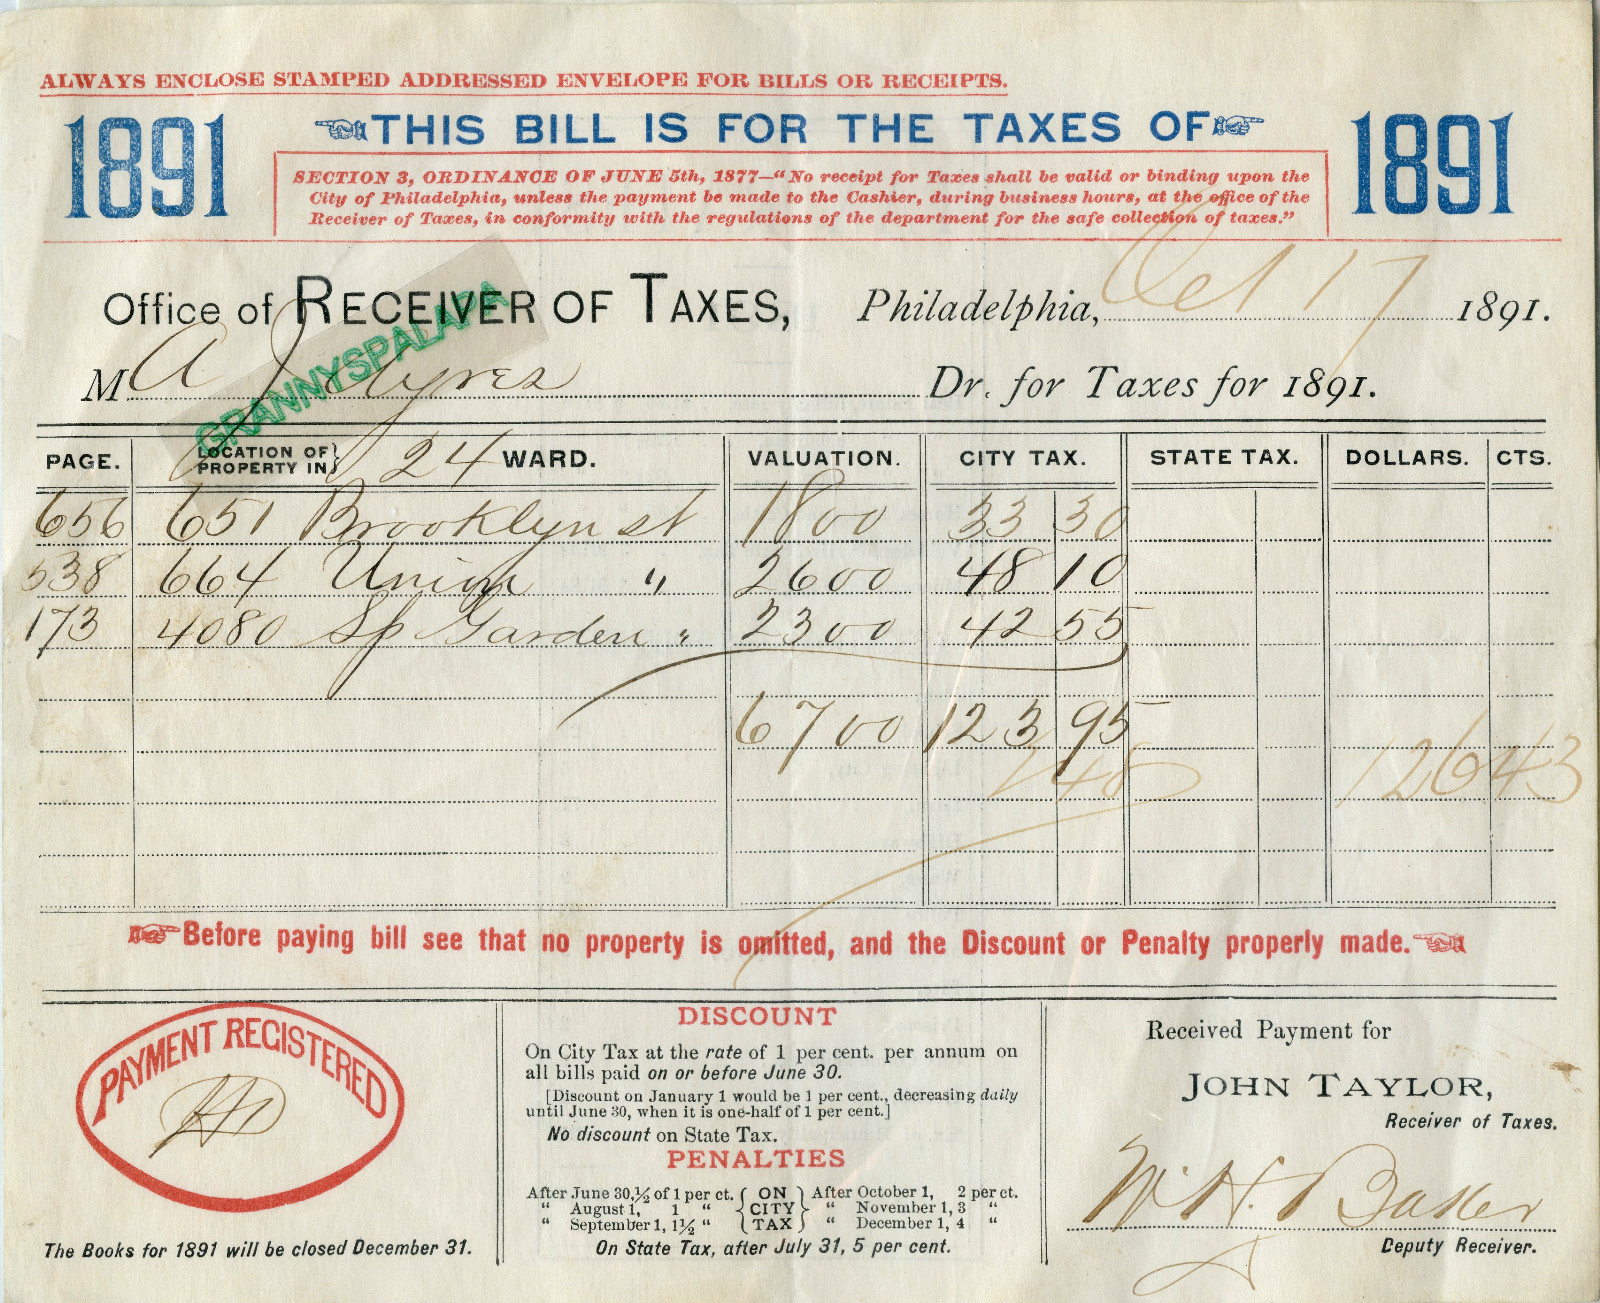 ALWAYS ENCLOSE STAMPED ADDRESSED ENVELOPE FOR BILLS OR RECEIPTS.
1891 THIS BILL IS FOR THE TAXES OF 1891
SECTION 3, ORDINANCE OF JUNE 5th, 1877—"No receipt for Taxes shall be valid or binding upon the
City of Philadelphia, unless the payment be made to the Cashier, during business hours, at the office of the
Receiver of Taxes, in conformity with the regulations of the department for the safe collection of taxes."
Office of RECEIVER OF TAXES, Philadelphia, Oct 17 1891.
GRANNYSPALAPA
M A J Ayres Dr. for Taxes for 1891.
PAGE. LOCATION OF PROPERTY IN} 24 WARD. VALUATION. CITY TAX. STATE TAX. DOLLARS. CTS.
656 651 Brooklyn st 1800 33 30
538 664 Union " 2600 48 10
173 4080 Sp Garden " 2300 42 55
6700 123 95
2 48 126 43
Before paying bill see that no property is omitted, and the Discount or Penalty properly made.
PAYMENT REGISTERED
The Books for 1891 will be closed December 31.
DISCOUNT
On City Tax at the rate of 1 per cent. per annum on
all bills paid on or before June 30.
[Discount on January 1 would be 1 per cent., decreasing daily
until June 30, when it is one-half of 1 per cent.]
No discount on State Tax.
PENALTIES
After June 30, ½ of 1 per ct. { ON } After October 1, 2 per ct.
" August 1, 1 " { CITY } " November 1, 3 "
" September 1, 1½ " { TAX } " December 1, 4 "
On State Tax, after July 31, 5 per cent.
Received Payment for
JOHN TAYLOR,
Receiver of Taxes.
W. H. Baxter
Deputy Receiver.